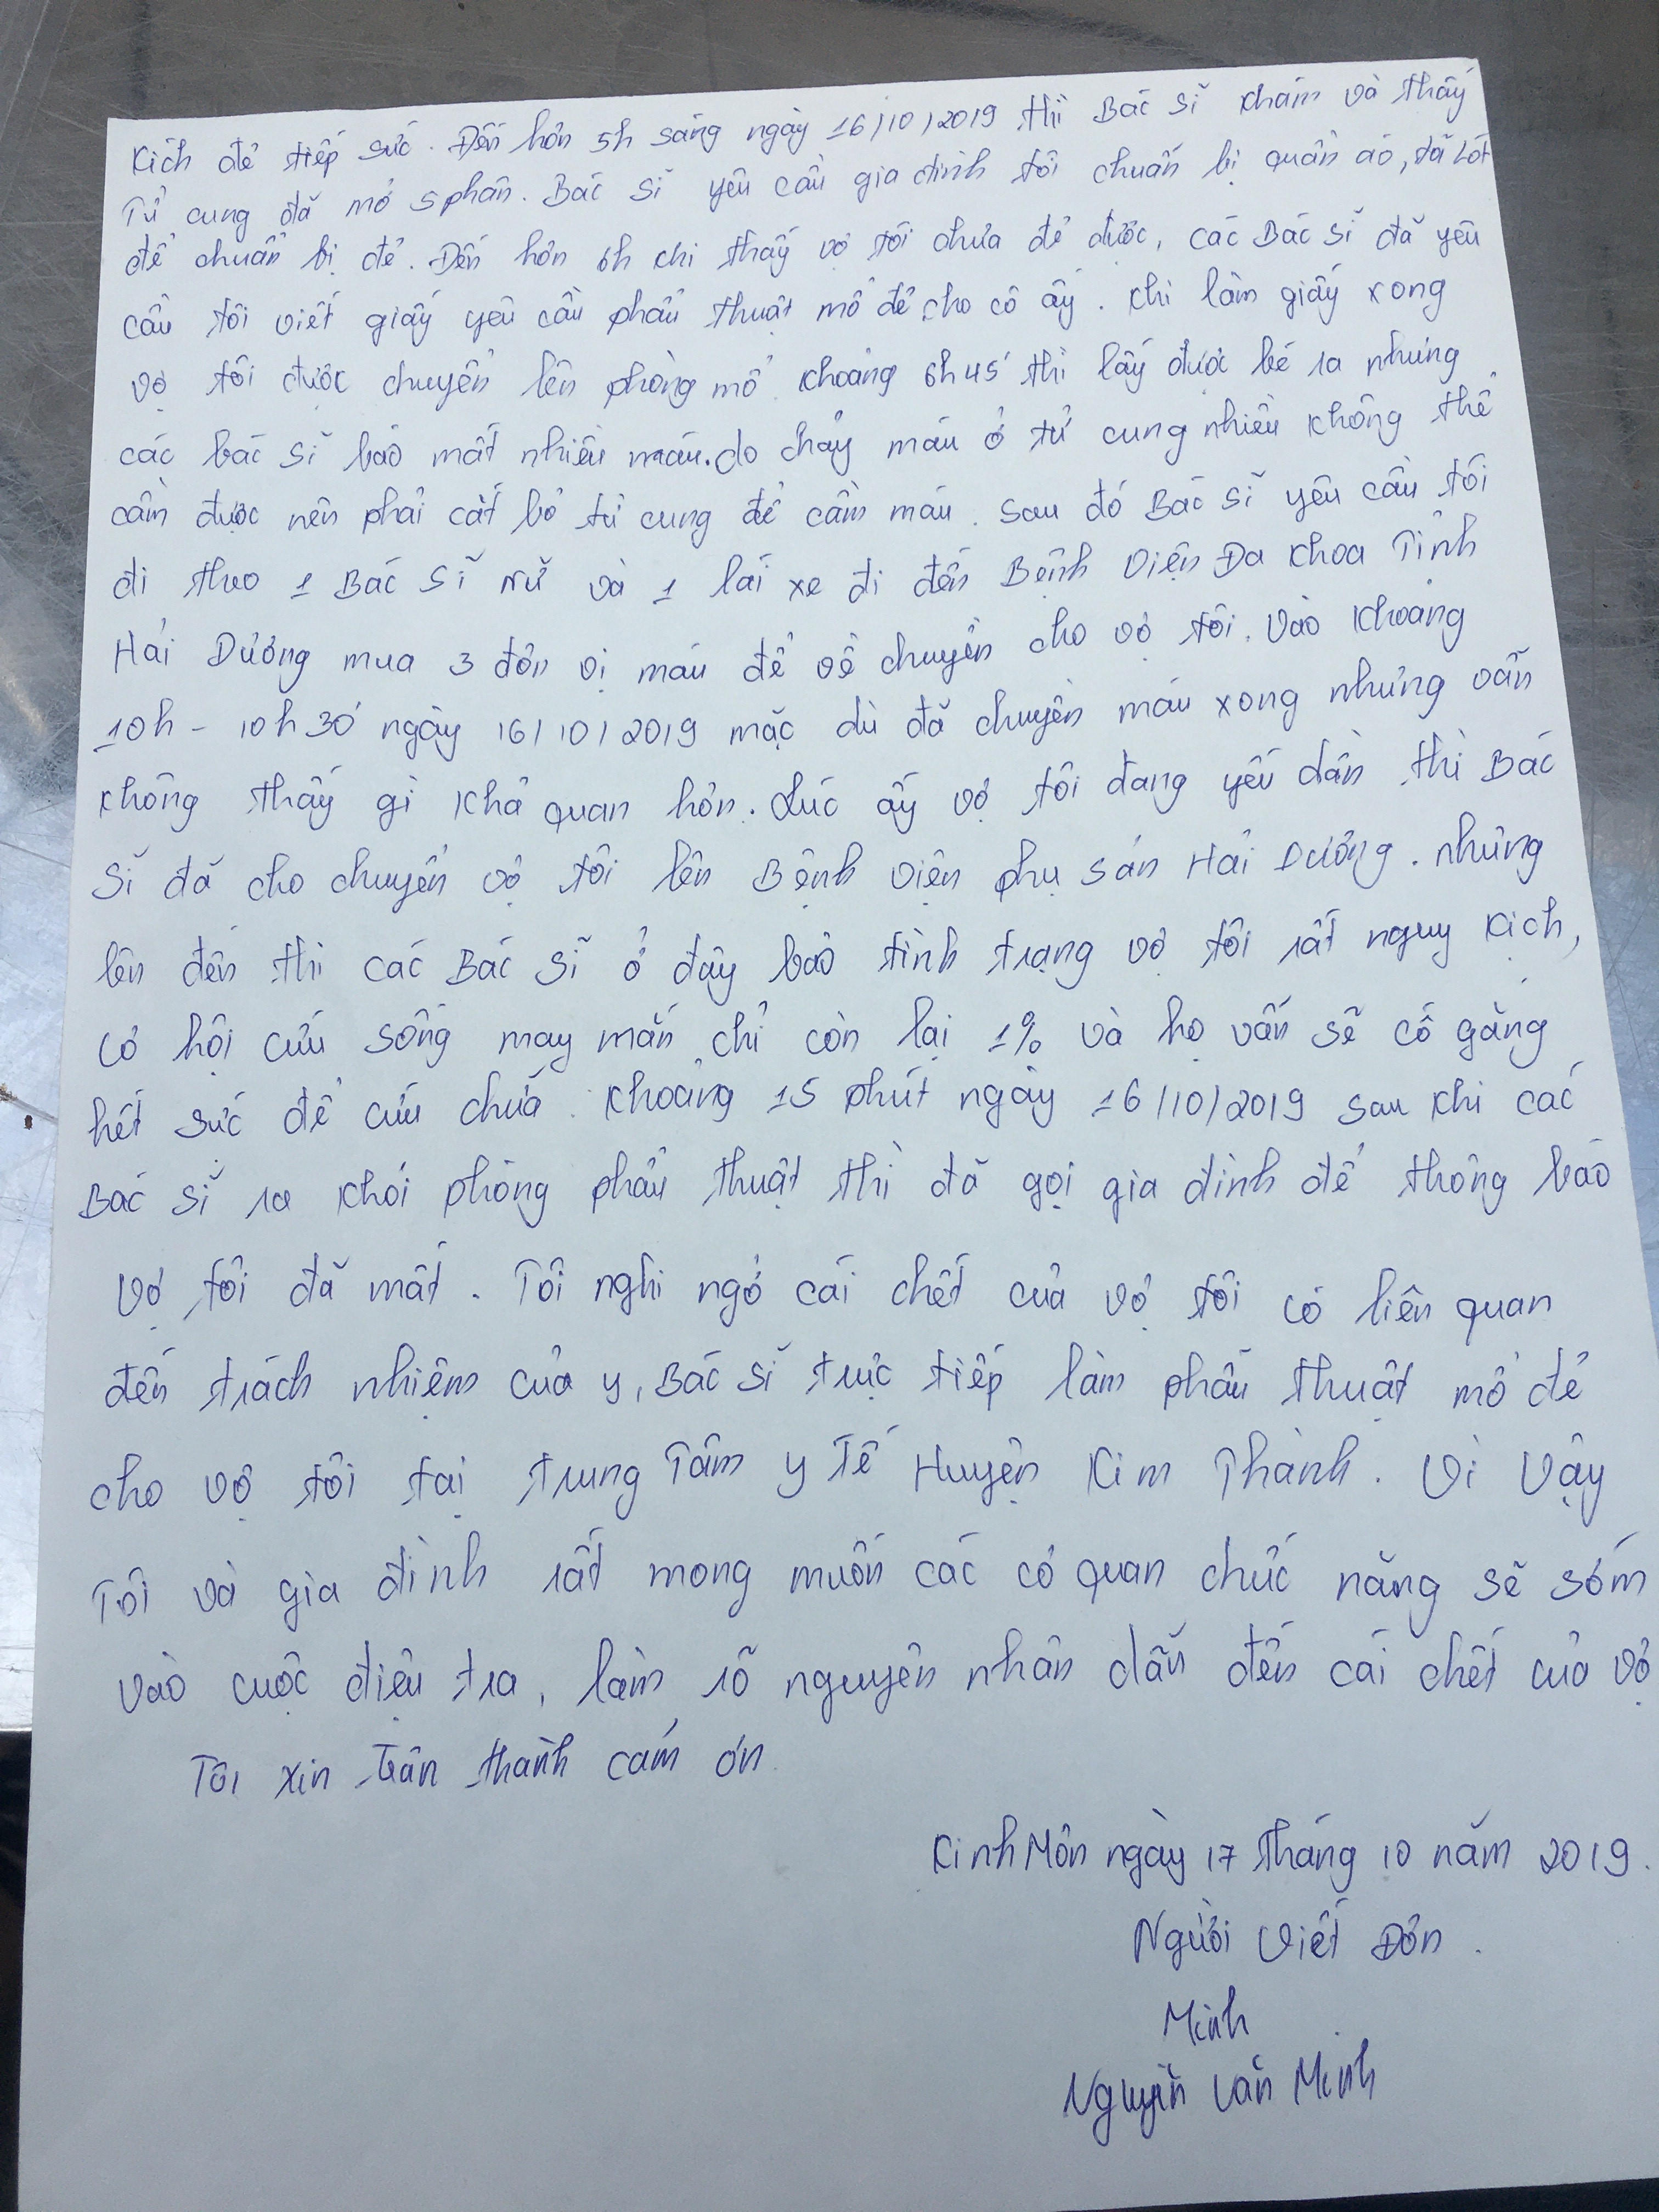 Kích đẻ tiếp sức. Đến hơn 5h sáng ngày 16/10/2019 thì Bác sĩ khám và thấy
Tử cung đã mở 5 phân. Bác sĩ yêu cầu gia đình tôi chuẩn bị quần áo, tã lót
để chuẩn bị đẻ. Đến hơn 6h khi thấy vợ tôi chưa đẻ được, các Bác sĩ đã yêu
cầu tôi viết giấy yêu cầu phẫu thuật mổ đẻ cho cô ấy. Khi làm giấy xong
vợ tôi được chuyển lên phòng mổ. Khoảng 6h45' thì lấy được bé ra nhưng
các bác sĩ báo mất nhiều máu. do chảy máu ở tử cung nhiều không thể
cầm được nên phải cắt bỏ tử cung để cầm máu. Sau đó Bác sĩ yêu cầu tôi
đi theo 1 Bác sĩ nữ và 1 lái xe đi đến Bệnh Viện Đa Khoa Tỉnh
Hải Dương mua 3 đơn vị máu để về chuyền cho vợ tôi. Vào khoảng
10h - 10h30' ngày 16/10/2019 mặc dù đã chuyền máu xong nhưng vẫn
không thấy gì khả quan hơn. Lúc ấy vợ tôi đang yếu dần thì Bác
sĩ đã cho chuyển vợ tôi lên Bệnh viện phụ sản Hải Dương. nhưng
lên đến thì các Bác sĩ ở đây báo tình trạng vợ tôi rất nguy kịch,
cơ hội cứu sống may mắn chỉ còn lại 1% và họ vẫn sẽ cố gắng
hết sức để cứu chữa. Khoảng 15 phút ngày 16/10/2019 sau khi các
Bác sĩ ra khỏi phòng phẫu thuật thì đã gọi gia đình để thông báo
vợ tôi đã mất. Tôi nghi ngờ cái chết của vợ tôi có liên quan
đến trách nhiệm của y, Bác sĩ trực tiếp làm phẫu thuật mổ đẻ
cho vợ tôi tại trung Tâm y Tế Huyện Kim Thành. Vì Vậy
Tôi và gia đình rất mong muốn các cơ quan chức năng sẽ sớm
vào cuộc điều tra, làm rõ nguyên nhân dẫn đến cái chết của vợ
Tôi xin trân thành cảm ơn.
Kinh Môn ngày 17 tháng 10 năm 2019.
Người Viết Đơn.
Minh
Nguyễn Văn Minh